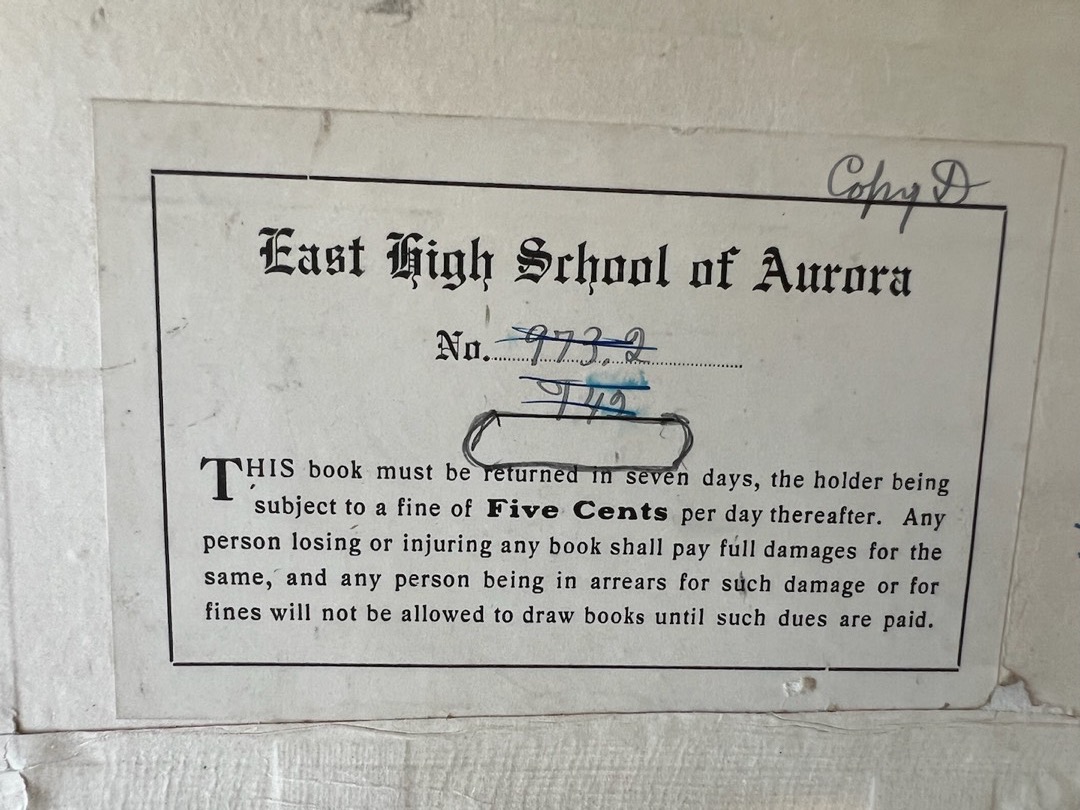 Copy D
East High School of Aurora
No. 973.2
942
THIS book must be returned in seven days, the holder being
subject to a fine of Five Cents per day thereafter. Any
person losing or injuring any book shall pay full damages for the
same, and any person being in arrears for such damage or for
fines will not be allowed to draw books until such dues are paid.